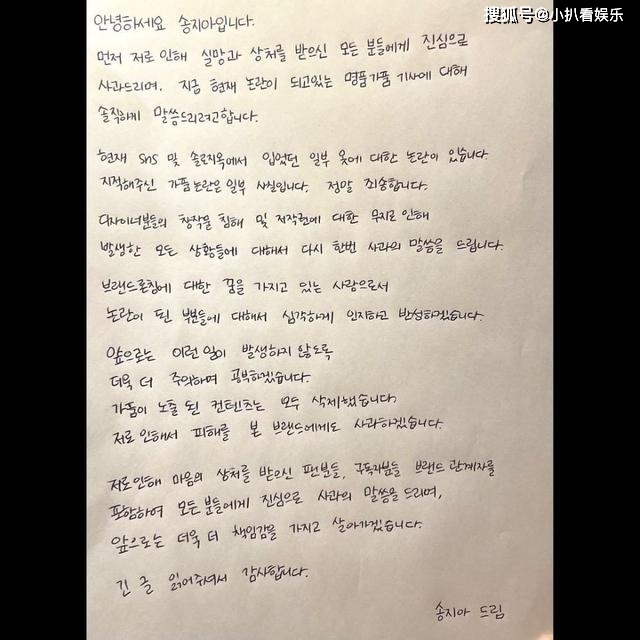 搜狐号@小扒看娱乐
안녕하세요 송지아입니다.
먼저 저로 인해 실망과 상처를 받으신 모든 분들에게 진심으로
사과드리며, 지금 현재 논란이 되고있는 명품가품 기사에 대해
솔직하게 말씀드리려고합니다.
현재 sns 및 솔로지옥에서 입었던 일부 옷에 대한 논란이 있습니다.
지적해주신 가품논란은 일부 사실입니다. 정말 죄송합니다.
디자이너분들의 창작물 침해 및 저작권에 대한 무지로 인해
발생한 모든 상황들에 대해서 다시 한번 사과의 말씀을 드립니다.
브랜드론칭에 대한 꿈을 가지고 있는 사람으로서
논란이 된 부분들에 대해서 심각하게 인지하고 반성하겠습니다.
앞으로는 이런 일이 발생하지 않도록
더욱 더 주의하며 공부하겠습니다.
가품이 노출 된 컨텐츠는 모두 삭제했습니다.
저로 인해서 피해를 본 브랜드에게도 사과하겠습니다.
저로인해 마음의 상처를 받으신 팬분들, 구독자분들 브랜드 관계자를
포함하여 모든분들에게 진심으로 사과의 말씀을 드리며,
앞으로는 더욱 더 책임감을 가지고 살아가겠습니다.
긴 글 읽어주셔서 감사합니다.
송지아 드림